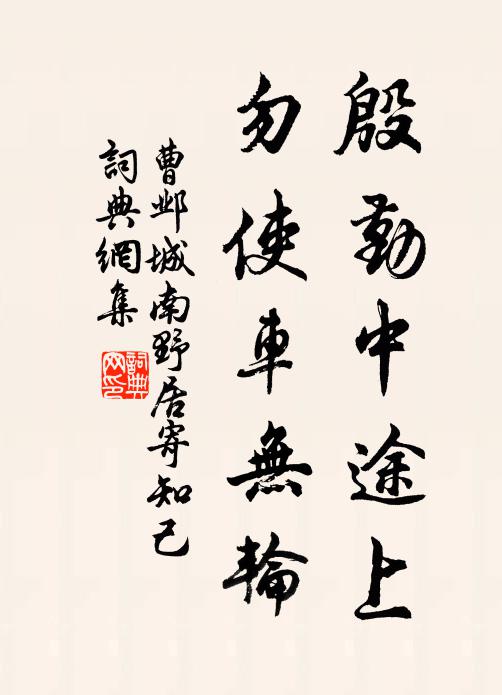 殷勤中途上
勿使車無輪
曹邺城南野居寄知己
詞典網集
詞典网印